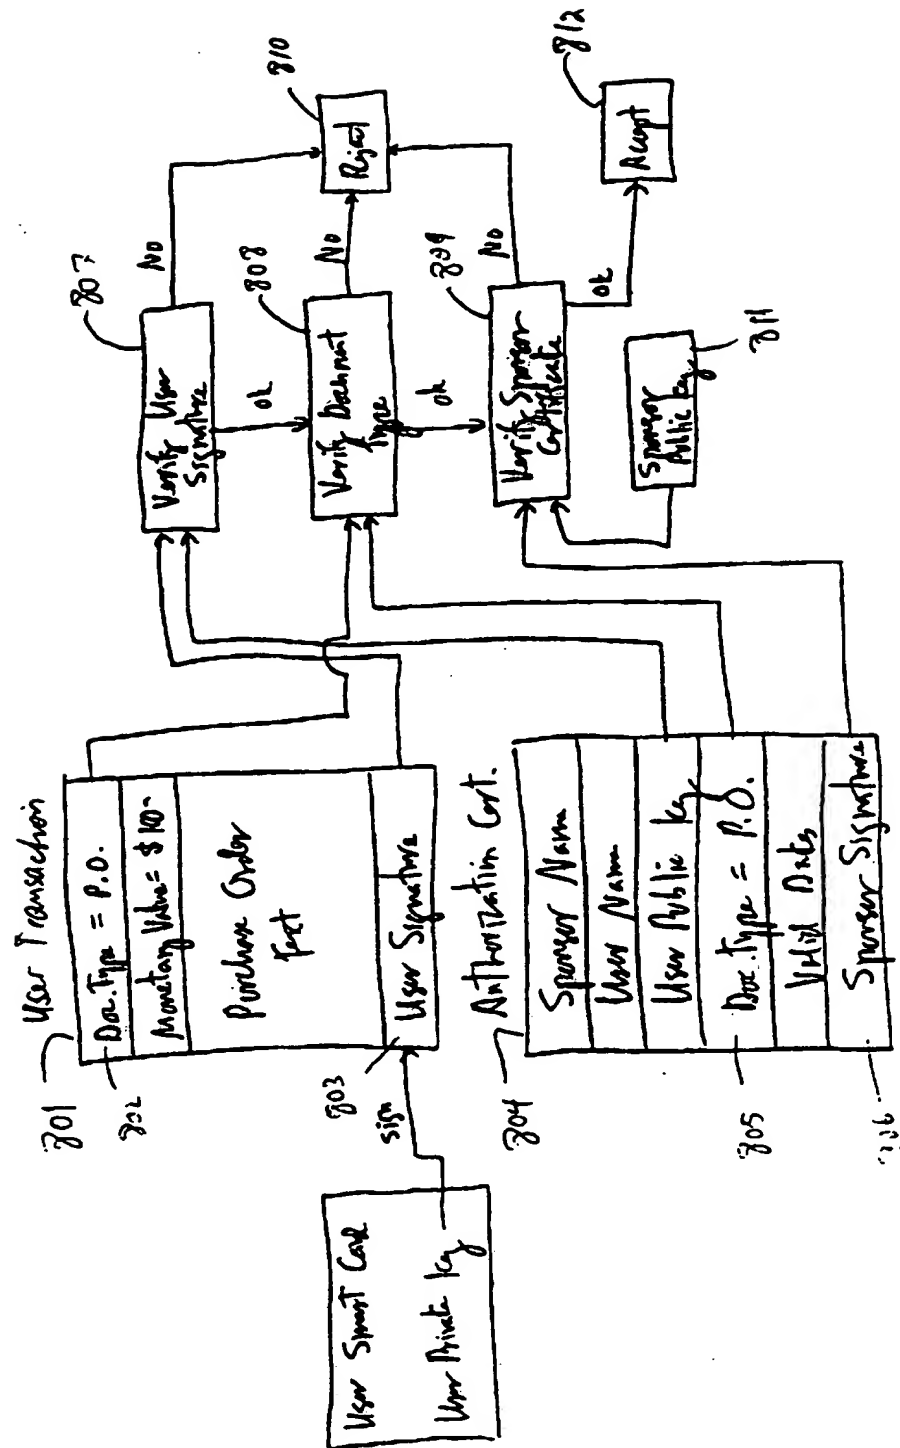 User Smart Card
User Private Key
sign
801
User Transaction
802
Doc. Type = P.O.
Monetary Value = $100-
Purchase Order
Text
803
User Signature
804
Authorization Cert.
Sponsor Name
User Name
User Public Key
805
Doc. Type = P.O.
Valid Dates
Sponsor Signature
807
Verify User
Signature
No
ok
808
Verify Document
Type
No
ok
809
Verify Sponsor
Certificate
No
ok
Sponsor
Public Key
811
810
Reject
812
Accept